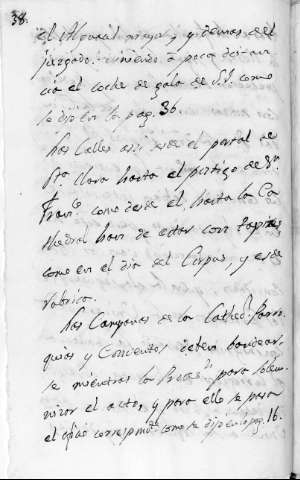 38.
el Alguacil mayor, y demas del
juzgado: viniendo a poca distan
cia el coche de gala de S.S. como
se dijo en la pag. 36.
Las Calles assi desde el portal de
Sta. Clara hasta el portigo de Sn.
Franco. como desde el hasta la Ca
thedral han de estar con tapizes
como en el dia del Corpus, y es de
rubrica.
Las Campanas de la Cathedl. Parro
quias y Conventos deben bandear
se mientras la Procesn. para solem
nizar el acto, y para ello se pasa
el ofico correspondte. como se dijo en la pag. 16.